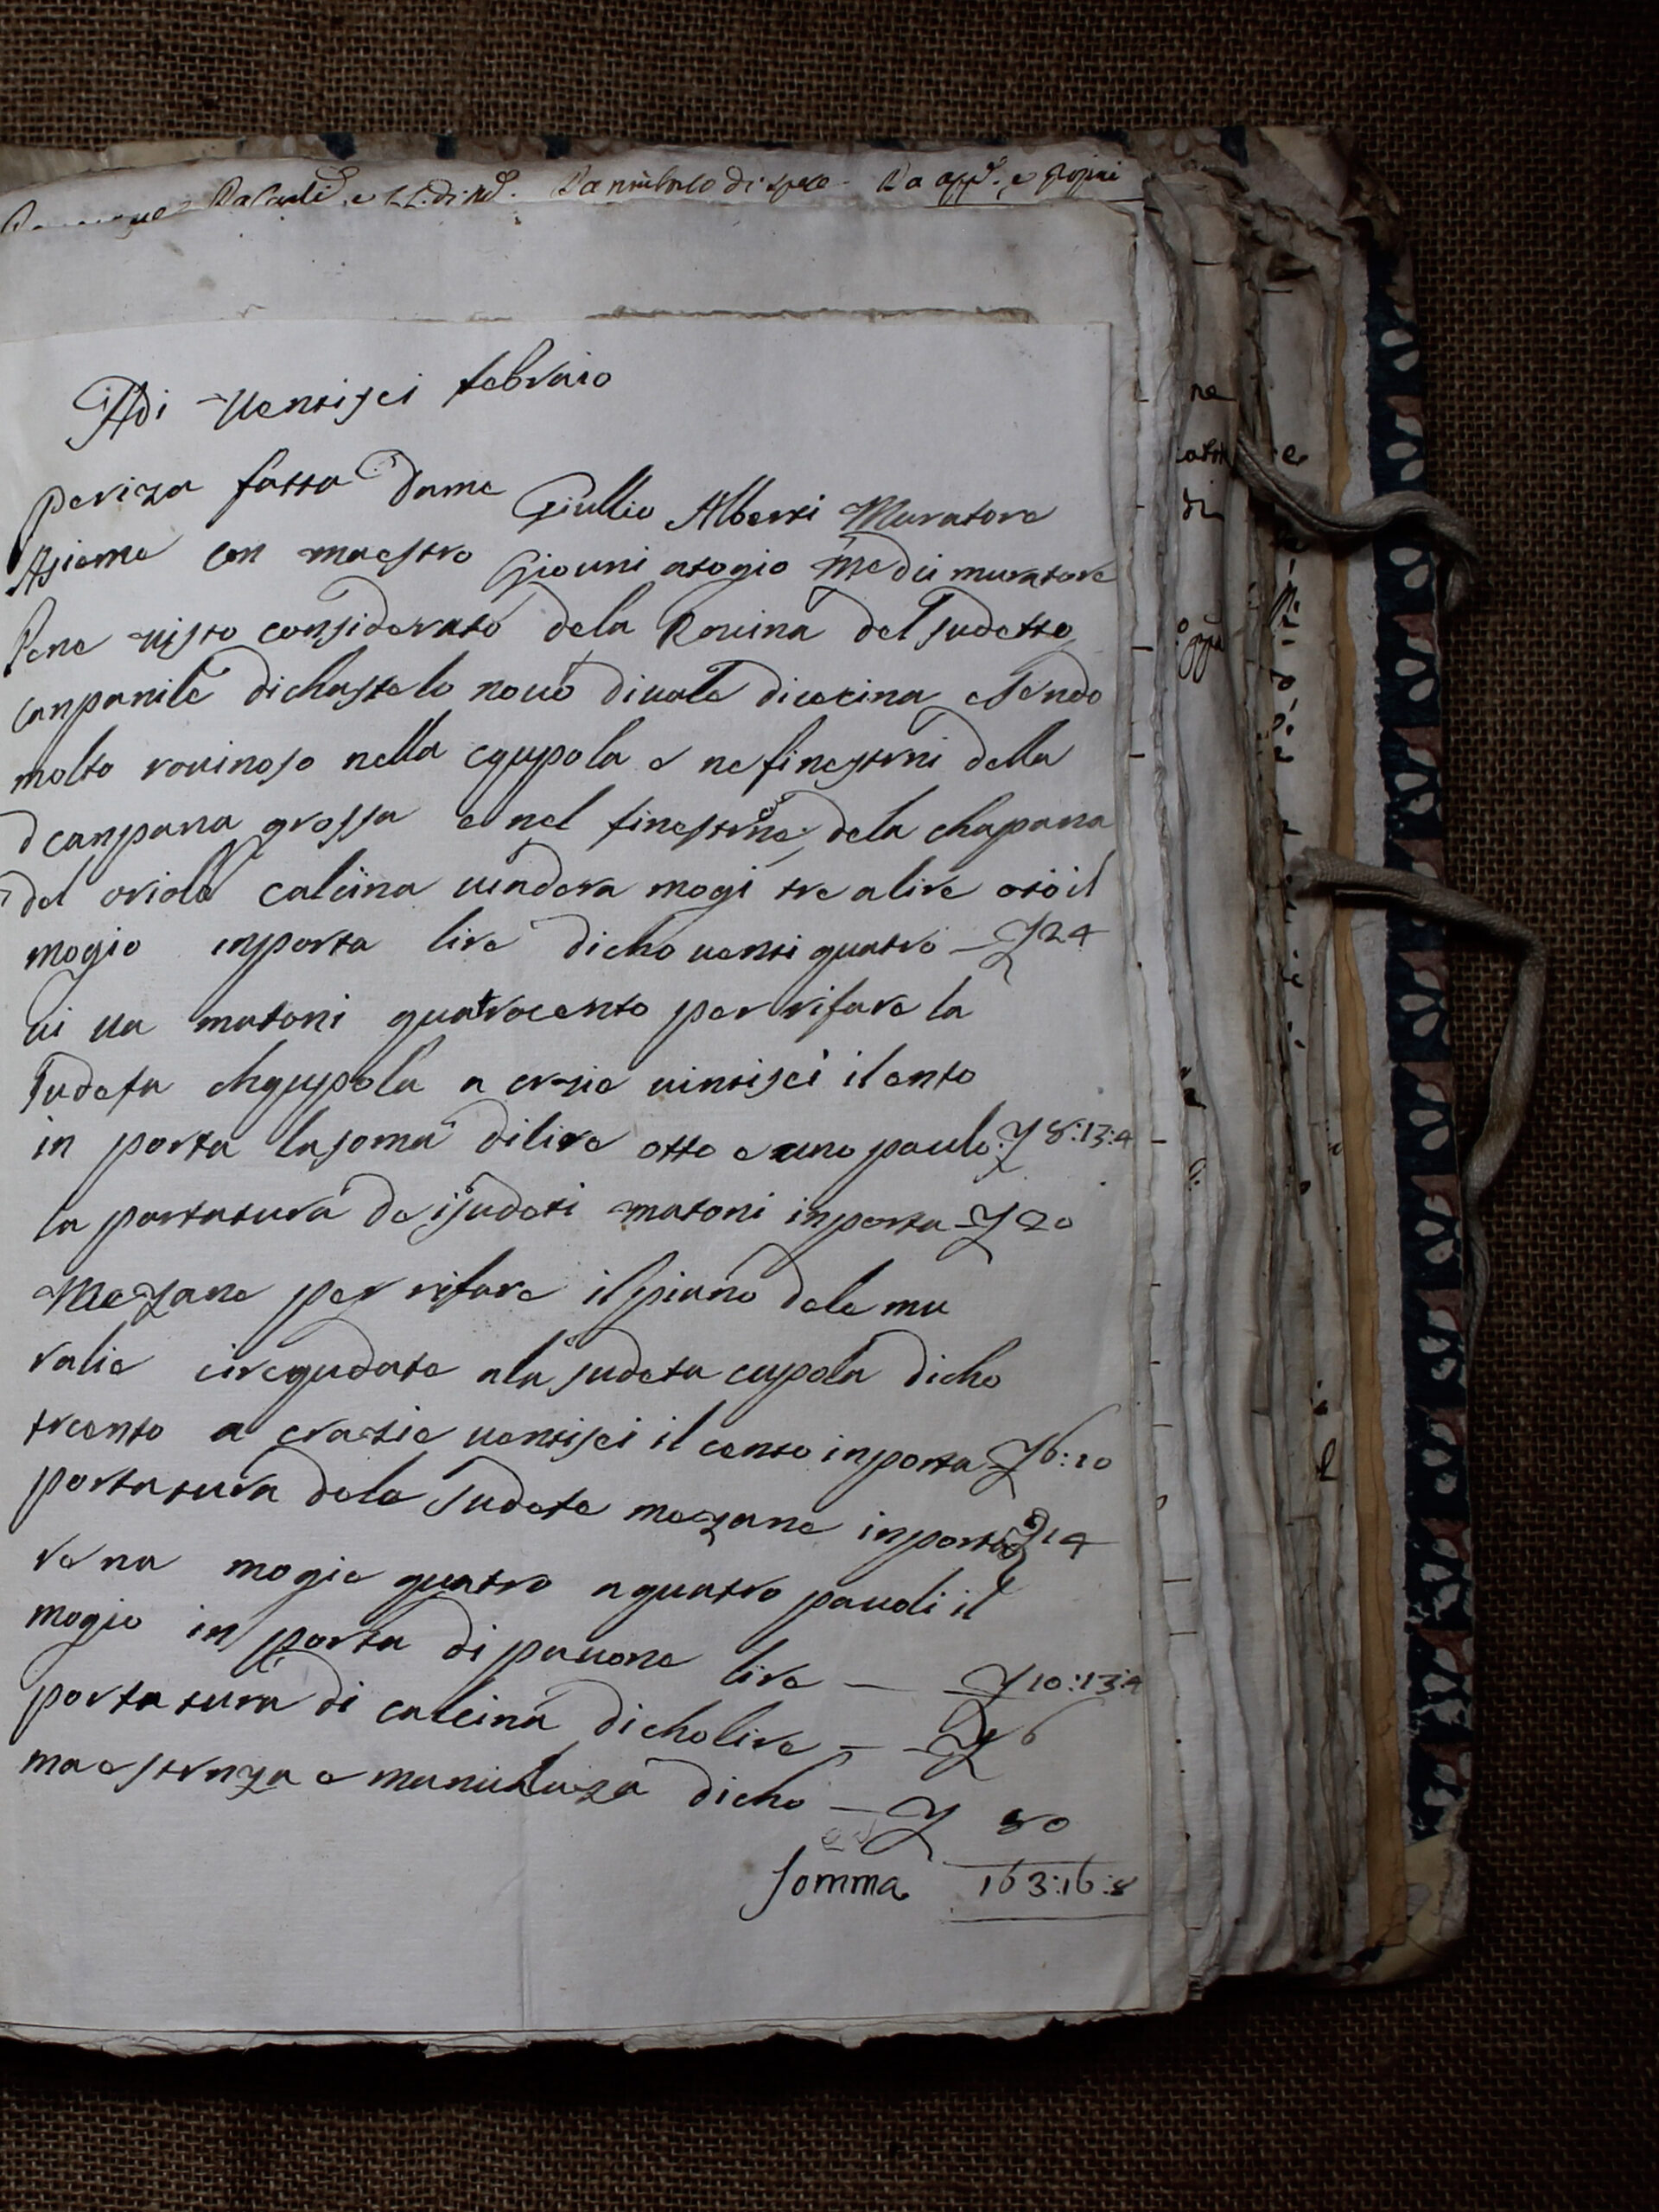 Adi Ventisei febraio
periza fatta dame Giullio Alberti Muratore
Asieme con maestro Giouni muratore
bene uisto considerato dela Rouina del sudetto
canpanile dichastelo nouo diuale dicecina esendo
molto rouinoso nella cqupola e ne finestrni della
canpana grossa e nel finestrne dela chapana
del oriolo calcina uindera mogi tre a lire oto il
mogio inporta lire dicho uenti quatro — £ 24
ui ua matoni quatrocento per rifare la
sudeta chqupola a crazie uintisei ilcento
in porta lasoma dilire otto e uno paulo £ 8:13:4
la portatura de isudeti matoni inporta £ 20
Mezane per rifare ilpiano dele mu
ralie ala sudeta cupola dicho
trcento a crazie uentisei il cento inporta £ 6:10
portatura dele sudete mezane inporta £ 14
rena mogie quatro a quatro pauoli il
mogio in porta di pauone lire — £ 10:13:4
portatura di calcina dicholire — £ 6
maestrnza e dicho — £ 80
somma 163:16:8